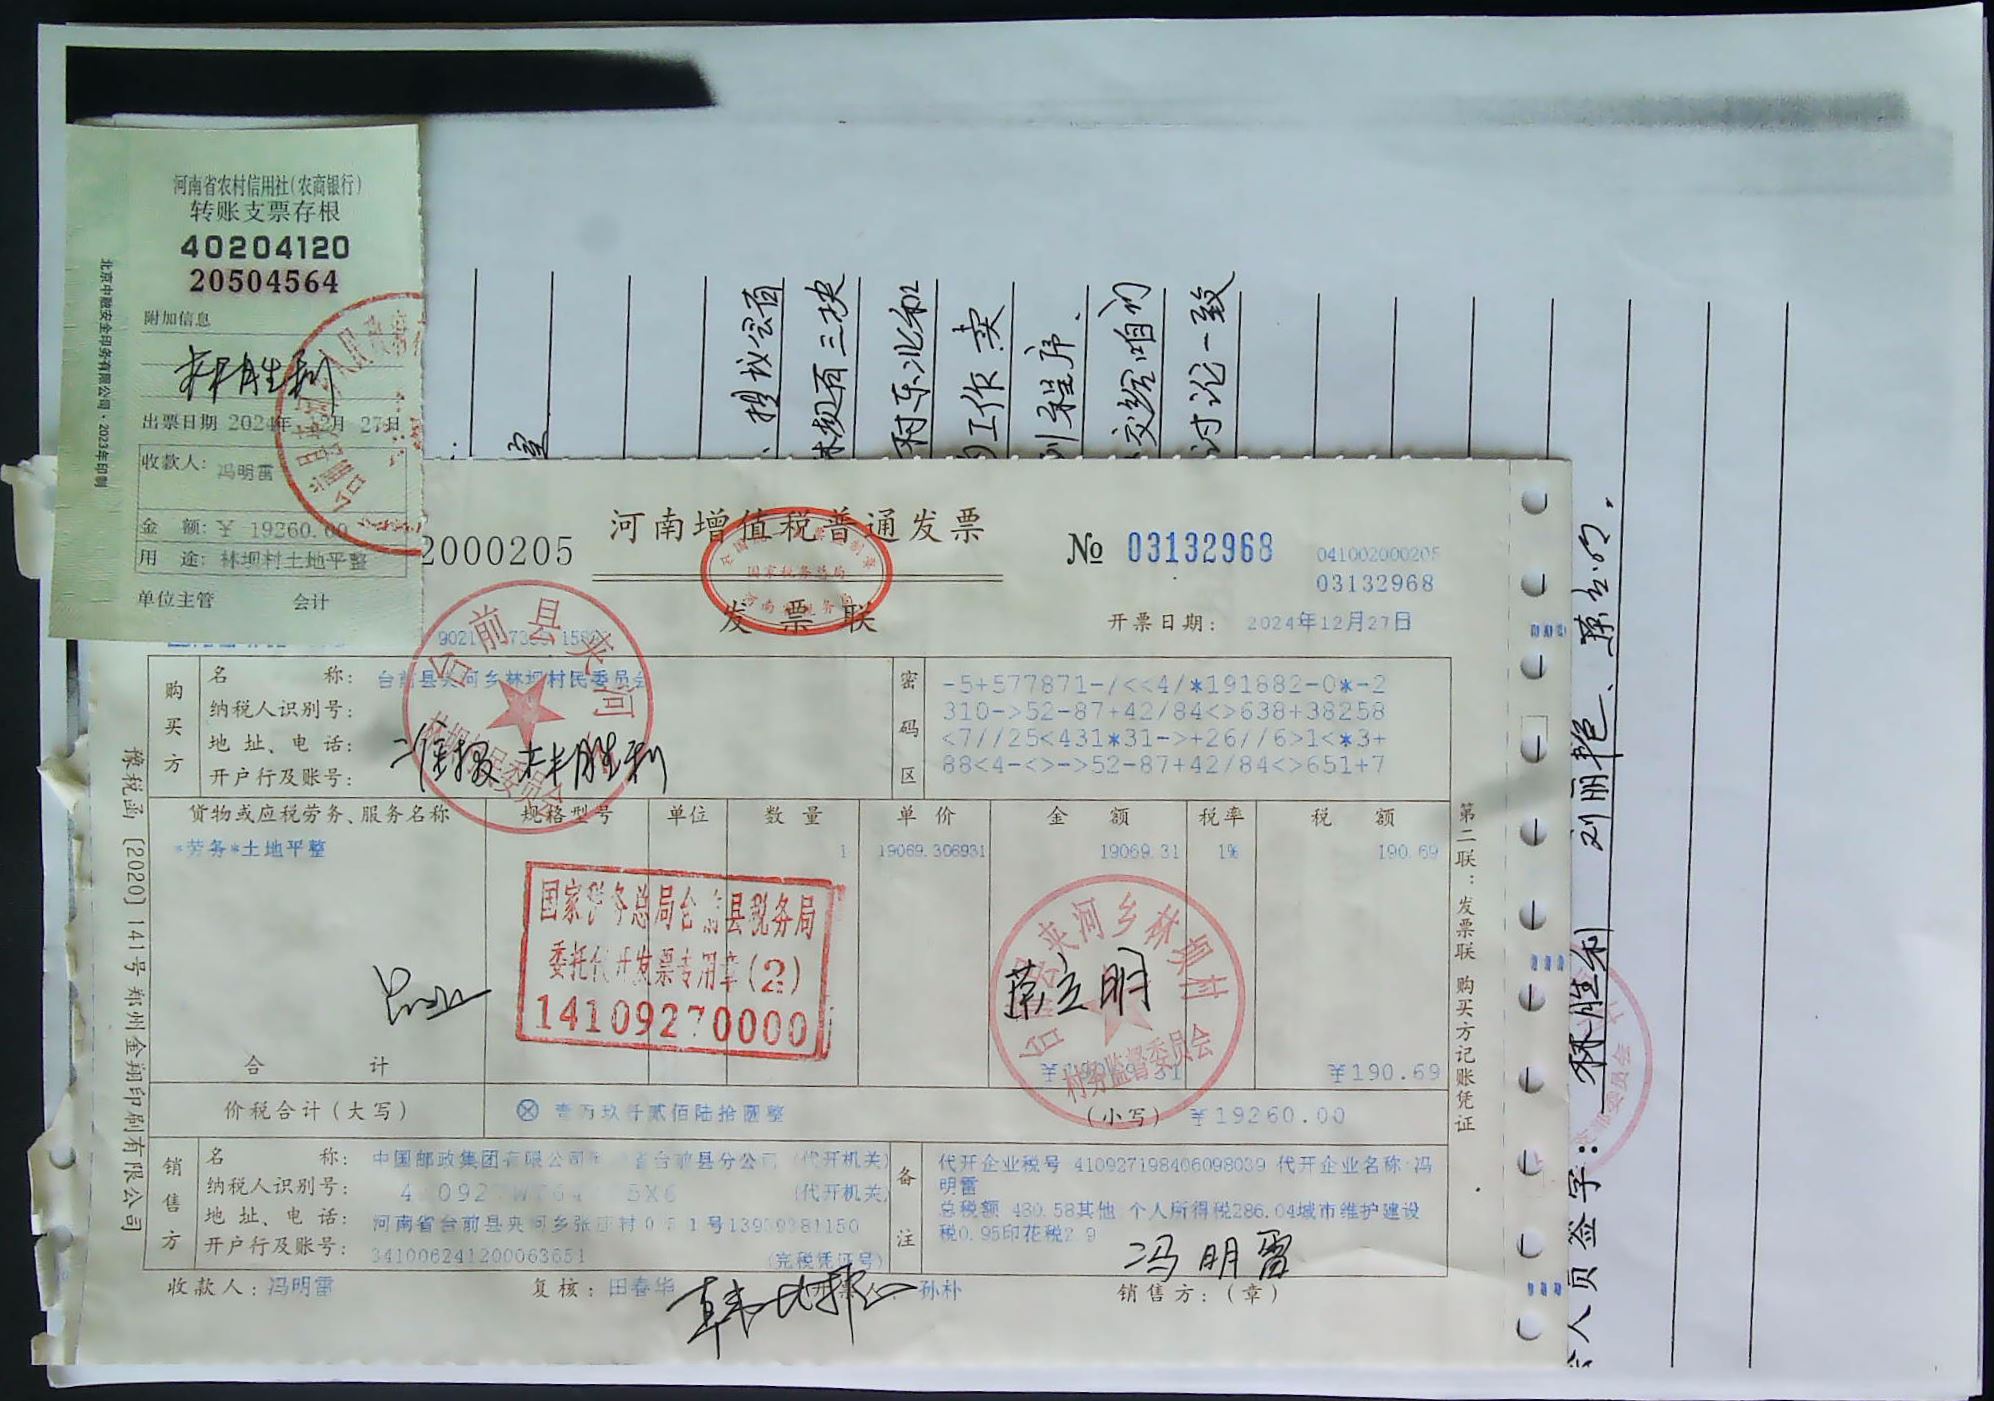 河南省农村信用社(农商银行)
转账支票存根
40204120
20504564
附加信息
林胜利
出票日期 2024年12月27日
收款人: 冯明雷
金 额: ¥ 19260.00
用 途: 林坝村土地平整
单位主管 会计
北京中融安全印务有限公司·2023年印制
提议会前
林坝有三块
村东北和
工作 卖
程序.
交给咱们
讨论一致
2000205
河南增值税普通发票
发票联
国家税务总局
№ 03132968
041002000205
03132968
开票日期: 2024年12月27日
购买方
名 称: 台前县夹河乡林坝村民委员会
纳税人识别号:
地 址、电 话:
开户行及账号:
准报 林胜利
密码区
-5+577871-/<<4/*191882-0*-2
310->52-87+42/84<>638+38258
<7//25<431*31->+26//6>1<*3+
88<4-<>->52-87+42/84<>651+7
货物或应税劳务、服务名称 规格型号 单位 数量 单价 金额 税率 税额
*劳务*土地平整 1 19069.306931 19069.31 1% 190.69
国家税务总局台前县税务局
委托代开发票专用章(2)
14109270000
台前县夹河
林坝村民委员会
夹河乡林坝村
村务监督委员会
合 计 ¥190.69
价税合计(大写) ⊗ 壹万玖仟贰佰陆拾圆整 (小写) ¥19260.00
销售方
名 称: 中国邮政集团有限公司 省台前县分公司 (代开机关)
纳税人识别号: (代开机关)
地 址、电 话: 河南省台前县夹河乡张
开户行及账号: 341006241200063651 (完税凭证号)
备注
代开企业税号 410927198406098039 代开企业名称:冯
明雷
总税额 480.58其他 个人所得税286.04城市维护建设
税0.95印花税2.9
冯明雷
收款人: 冯明雷 复核: 田春华 开票人: 孙朴 销售方: (章)
第二联:发票联 购买方记账凭证
豫税函〔2020〕141号郑州金翔印刷有限公司
人员签字: 林胜利 刘丽艳、